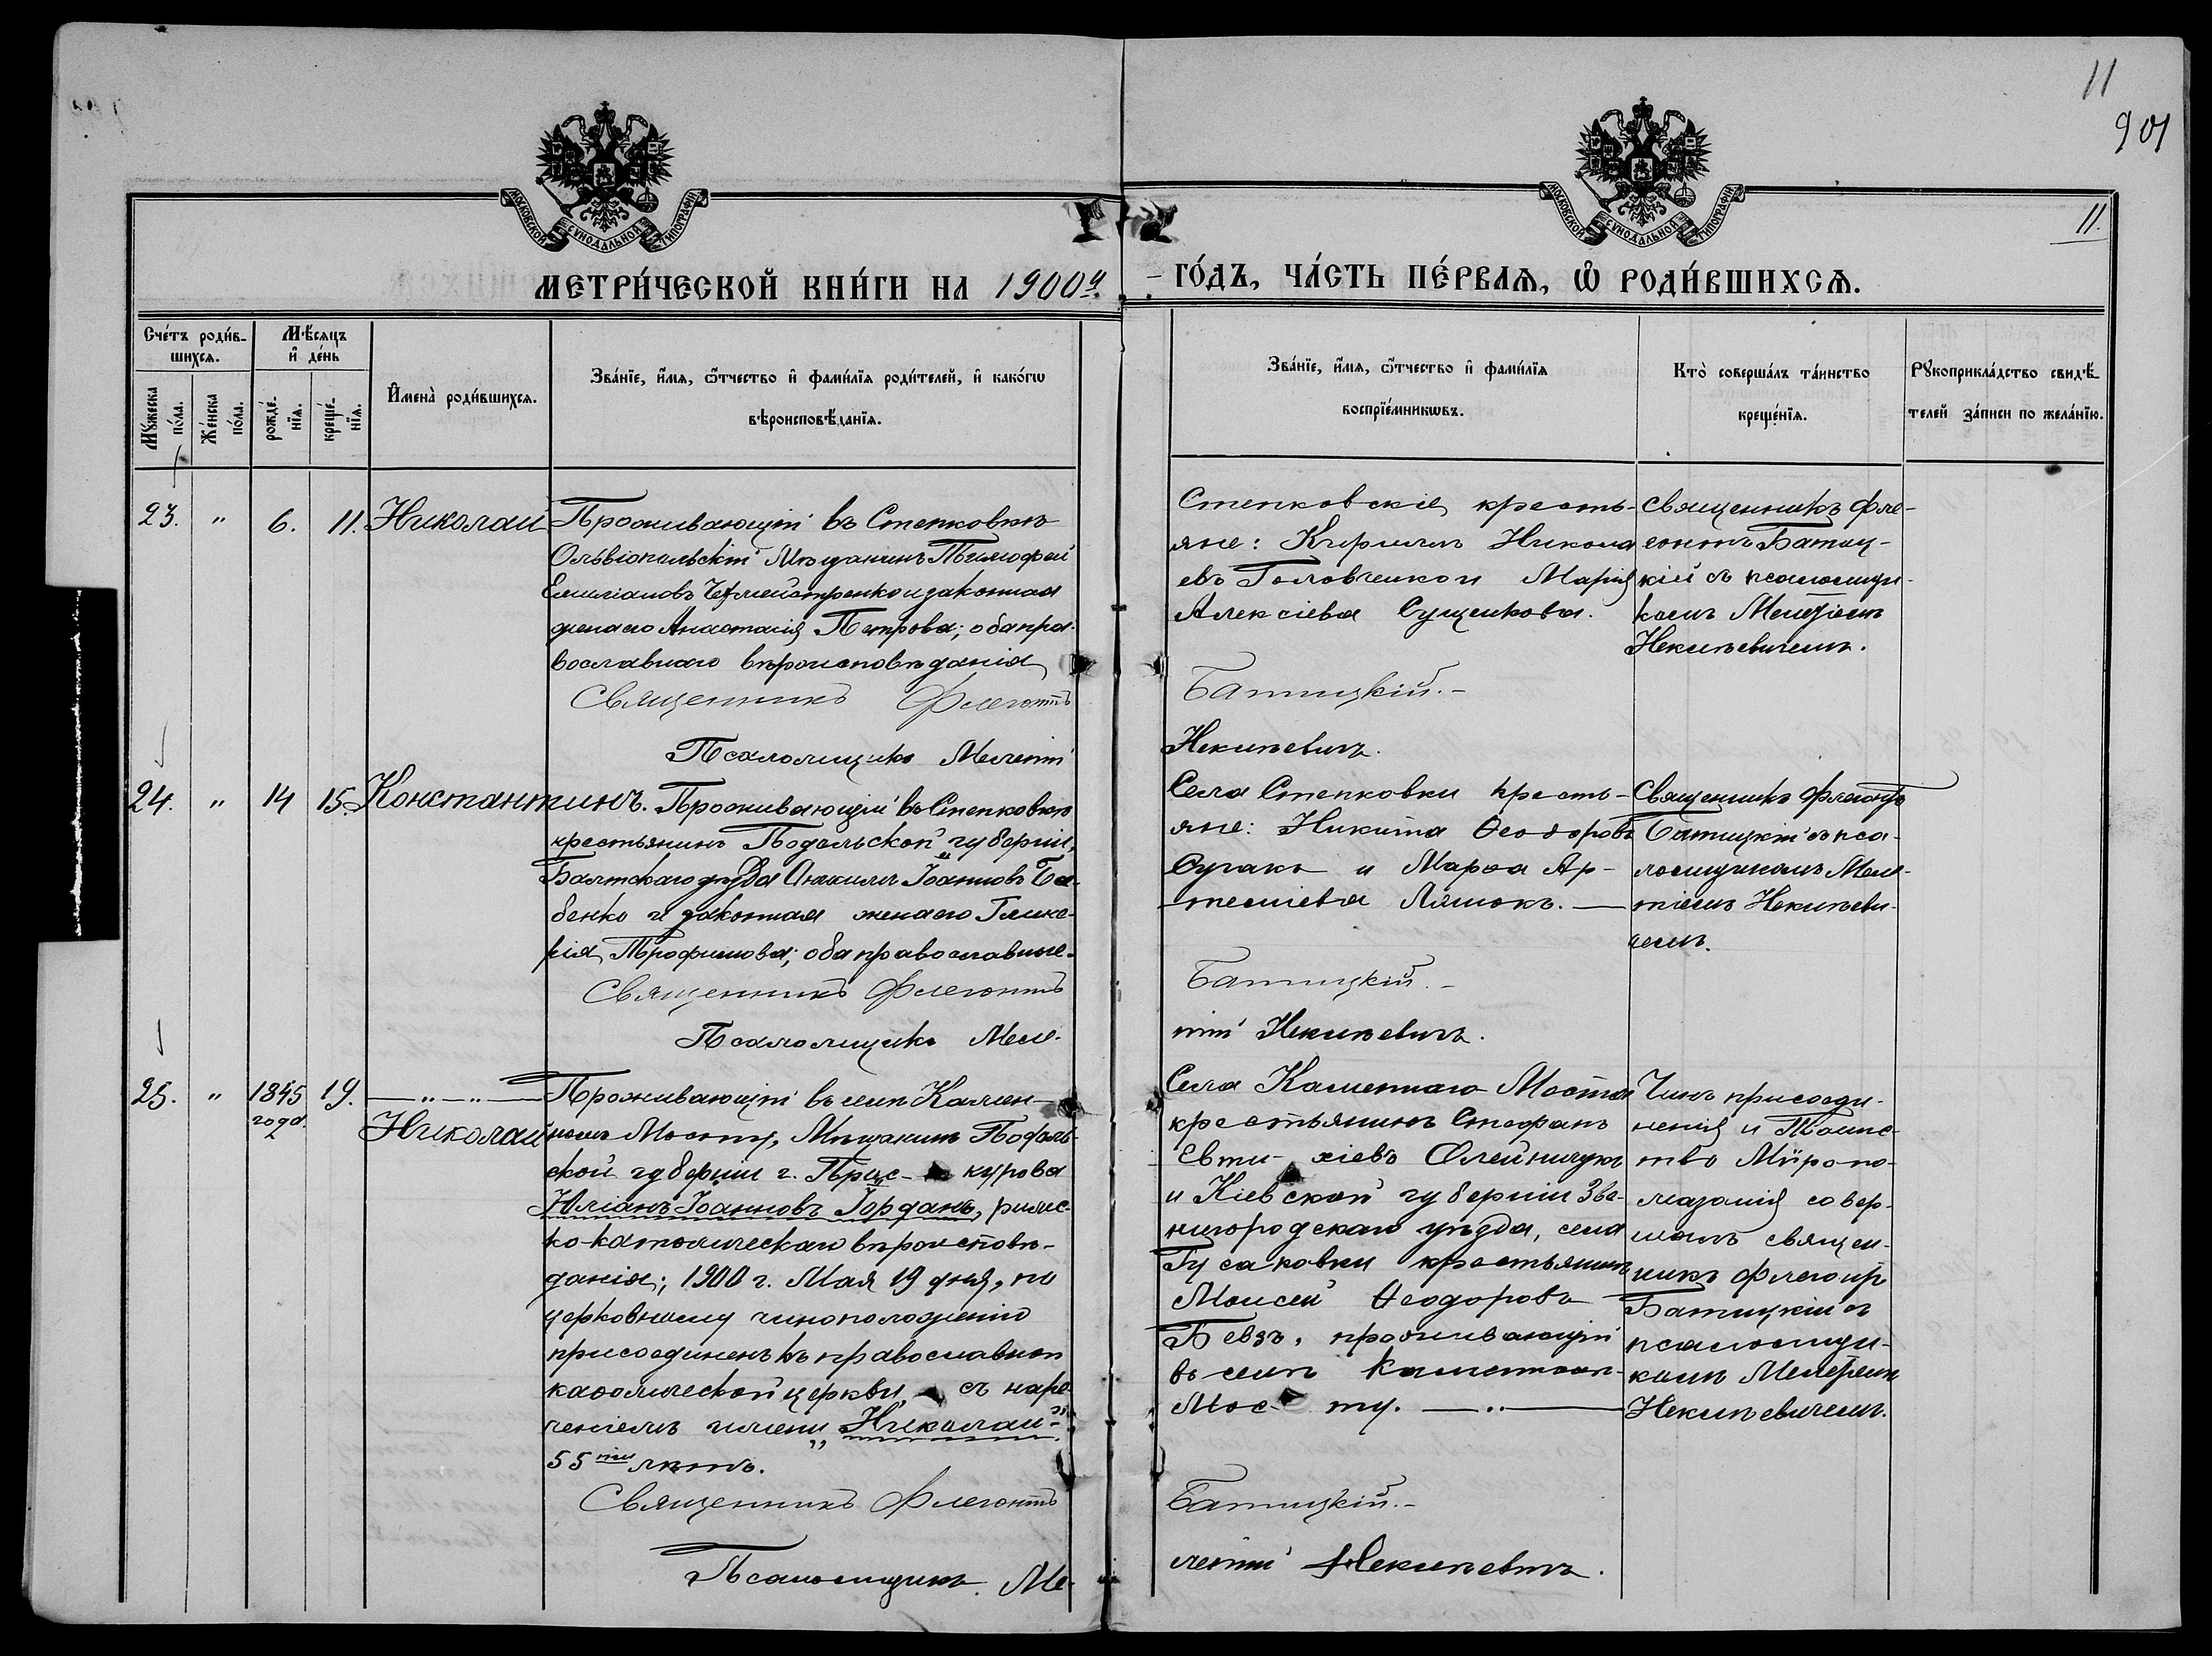 11
901
МОСКОВСКОЙ СУНОДАЛЬНОЙ ТИПОГРАФІИ
МОСКОВСКОЙ СУНОДАЛЬНОЙ ТИПОГРАФІИ
11.
МЕТРИ́ЧЕСКОЙ КНИ́ГИ НА 1900й
ГО́ДЪ, ЧА́СТЬ ПЕ́РВАѦ, Ѡ҆ РОДИ́ВШИХСѦ.
Сче́тъ роди́в-
шихсѧ.
Мꙋ́жеска
по́ла.
Же́нска
по́ла.
Мѣ́сѧцъ
и҆ де́нь
рожде́-
нїѧ.
креще́-
нїѧ.
И҆мена̀ роди́вшихсѧ.
Зва́нїе, и҆́мѧ, ѻ҆́тчество и҆ фами́лїѧ роди́телей, и҆ како́гѡ
вѣроисповѣ́данїѧ.
Зва́нїе, и҆́мѧ, ѻ҆́тчество и҆ фами́лїѧ
воспрїе́мникѡвъ.
Кто̀ соверша́лъ та́инство
креще́нїѧ.
Рꙋкоприкла́дство свидѣ́-
телей за́писи по жела́нїю.
23. " 6. 11. Николай
Проживающій въ Степковкѣ
Ольвіопольскій Мѣщанинъ Тимофей
Емиліановъ и законная
жена его Анастасія Петрова; оба пра-
вославнаго вѣроисповѣданія
Священникъ Флегонтъ
Псаломщикъ Мелетій
Степковскіе кресть-
яне: Кириллъ Никола
евъ Головченко и Марія
Алексіева Сущенкова.
Батицкій.-
Некипевичъ.
Священникъ Фле-
гонтъ Батиц-
кій съ псаломщи-
комъ Мелетіемъ
Некипевичемъ.
24. " 14 15. Константинъ.
Проживающій въ Степковкѣ
крестьянинъ Подольской губерніи,
Балтскаго уѣзда Іоанновъ Ба-
бенко и законная жена его Глике-
рія Трофимова; оба православные.
Священникъ Флегонтъ
Псаломщикъ Меле-
Села Степковки кресть-
яне: Никита Ѳеодоровъ
Сугакъ и Марѳа Ар-
темиева Лямокъ. —
Батицкій.-
тій Некипевичъ.
Священникъ Флегонтъ
Батицкій съ пса-
ломщикомъ Меле-
тіемъ Некипеви-
чемъ.
25. " 1845
года
19. —"—"—
Николай
Проживающій въ селѣ Камен-
номъ Мосту, Мѣщанинъ Подоль-
ской губерніи г. Прос- курова
Юліанъ Іоанновъ Іорданъ, римс-
ко-католическаго вѣроисповѣ-
данія; 1900 г. Мая 19 дня, по
церковному чиноположенію
присоединенъ къ православной
каѳолической церкви, съ наре-
ченіемъ имени „Николай"
55ти лѣтъ.
Священникъ Флегонтъ
Псаломщикъ. Ме-
Села Каменнаго Моста
крестьянинъ Стефанъ
Евти- хіевъ Олейничукъ
и Кіевской губерніи Зве-
нигородскаго уѣзда, села
Гусаковки крестьянинъ
Моисей Ѳеодоровъ
Бевзъ, проживающій
въ селѣ Каменном-
Мос- ту. —"—
Батицкій.-
летій Некипевичъ.
Чинъ присоеди-
ненія и Таинс-
тво Мѵропо-
мазанія совер-
шалъ священ-
никъ Флегонтъ
Батицкій съ
псаломщи-
комъ Мелетіемъ
Некипевичемъ.